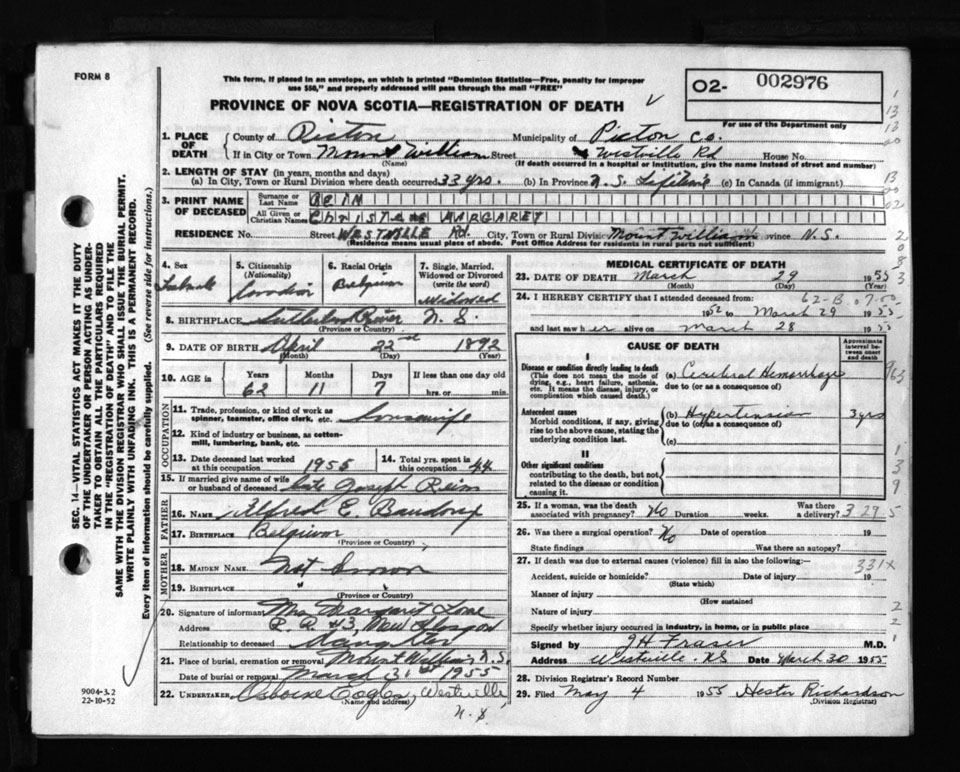 FORM 8
This form, if placed in an envelope, on which is printed "Dominion Statistics—Free, penalty for improper
use $50," and properly addressed will pass through the mail "FREE"
PROVINCE OF NOVA SCOTIA—REGISTRATION OF DEATH
O2- 002976
For use of the Department only
1. PLACE OF DEATH
County of Picton Municipality of Picton Co.
If in City or Town Mount William Street Westville Rd House No.
(Name) (If death occurred in a hospital or institution, give the name instead of street and number)
2. LENGTH OF STAY (in years, months and days)
(a) In City, Town or Rural Division where death occurred 33 yrs. (b) In Province N.S. Lifetime (c) In Canada (if immigrant)
3. PRINT NAME OF DECEASED
Surname or Last Name REIM
All Given or Christian Names MARGARET
RESIDENCE No. Street WESTVILLE Rd. City, Town or Rural Division Mount William Province N.S.
(Residence means usual place of abode. Post Office Address for residents in rural parts not sufficient)
4. Sex Female
5. Citizenship (Nationality) Canadian
6. Racial Origin Belgium
7. Single, Married, Widowed or Divorced (write the word) Widowed
8. BIRTHPLACE Sutherland River N.S.
(Province or Country)
9. DATE OF BIRTH April 22nd 1892
(Month) (Day) (Year)
10. AGE in Years Months Days If less than one day old
62 11 7 hrs. or min.
OCCUPATION
11. Trade, profession, or kind of work as spinner, teamster, office clerk, etc. housewife
12. Kind of industry or business, as cotton-mill, lumbering, bank, etc.
13. Date deceased last worked at this occupation 1955 14. Total yrs. spent in this occupation 44
15. If married give name of wife or husband of deceased Late Joseph Reim
FATHER
16. NAME Alfred E.
17. BIRTHPLACE Belgium
(Province or Country)
MOTHER
18. MAIDEN NAME Not known
19. BIRTHPLACE " "
(Province or Country)
20. Signature of informant Mrs Margaret
Address R.R. #3, New Glasgow
Relationship to deceased Daughter
21. Place of burial, cremation or removal Mount William N.S.
Date of burial or removal March 31st 1955
22. UNDERTAKER Osborne Westville,
(Name and address)
N.S.
MEDICAL CERTIFICATE OF DEATH
23. DATE OF DEATH March 29 1955
(Month) (Day) (Year)
24. I HEREBY CERTIFY that I attended deceased from: 62-B 07.00
1952 to March 29 1955
and last saw her alive on March 28 1955
CAUSE OF DEATH
Approximate interval between onset and death
I
Disease or condition directly leading to death
(This does not mean the mode of dying, e.g., heart failure, asthenia, etc. It means the disease, injury, or complication which caused death.)
(a) Cerebral Hemorrhage
due to (or as a consequence of)
Antecedent causes
Morbid conditions, if any, giving rise to the above cause, stating the underlying condition last.
(b) Hypertension 3 yrs
due to (or as a consequence of)
(c)
II
Other significant conditions
contributing to the death, but not related to the disease or condition causing it.
25. If a woman, was the death associated with pregnancy? No Duration weeks. Was there a delivery? 3 29-5
26. Was there a surgical operation? No Date of operation 19
State findings Was there an autopsy?
27. If death was due to external causes (violence) fill in also the following:— 331X
Accident, suicide or homicide? Date of injury 19
(State which)
Manner of injury
(How sustained
Nature of injury
Specify whether injury occurred in industry, in home, or in public place
Signed by J H Fraser M.D.
Address Westville. NS Date March 30 1955
28. Division Registrar's Record Number
29. Filed May 4 1955 Hester Richardson
(Division Registrar)
SEC. 14—VITAL STATISTICS ACT MAKES IT THE DUTY
OF THE UNDERTAKER OR PERSON ACTING AS UNDERTAKER
TO OBTAIN ALL THE PARTICULARS REQUIRED
IN THE "REGISTRATION OF DEATH" AND TO FILE THE
SAME WITH THE DIVISION REGISTRAR WHO SHALL ISSUE THE BURIAL PERMIT.
WRITE PLAINLY WITH UNFADING INK. THIS IS A PERMANENT RECORD.
Every item of information should be carefully supplied. (See reverse side for instructions.)
9004-3.2
22-10-52